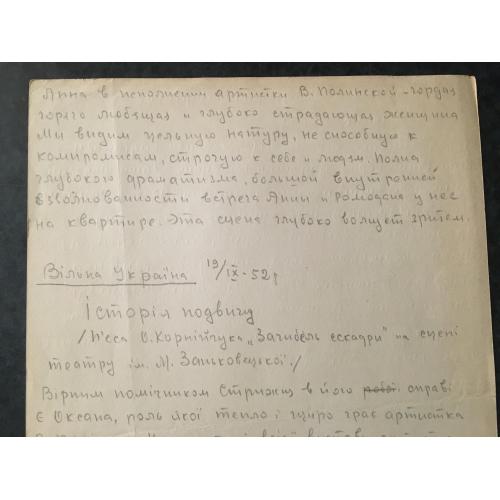 Анна в исполнении артистки В. Полинской - гордая
горячо любящая и глубоко страдающая женщина
Мы видим цельную натуру, не способную к
компромисам, строгую к себе и людям. Полна
глубокого драматизма, большой внутренней
взволнованности встреча Анны и Ромодана у нее
на квартире. Эта сцена глубоко волнует зрителя.
Вільна Україна 19/IX - 52 р
Історія подвигу
/П'єса О. Корнійчука „Загибель ескадри" на сцені
театру ім. М. Заньковецької./
Вірним помічником Стрижня в його робої справі
є Оксана, роль якої тепло і щиро грає артистка